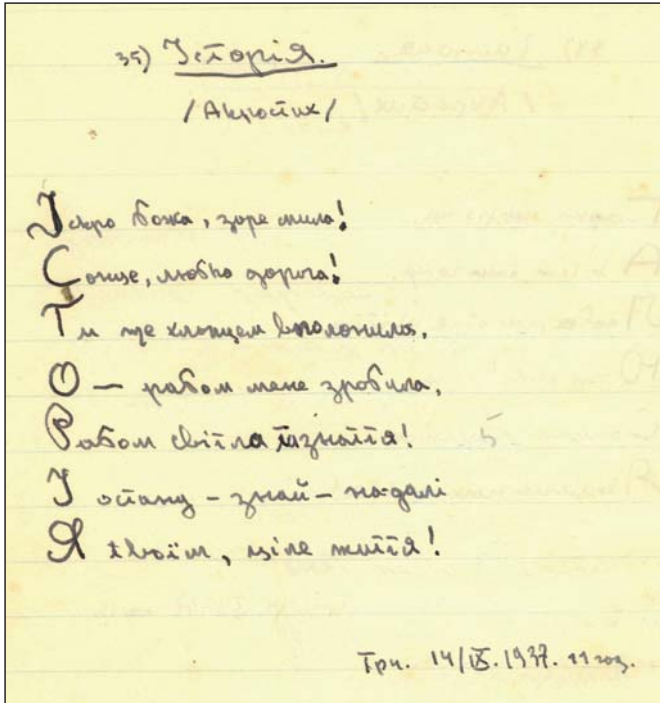 35) Історія.
/Акростих/
Іскро божа, зоре мила!
Сонце, любко дорога!
Ти ще хлопцем вполонила,
О — рабом мене зробила,
Рабом світла та знаття! 5
І остану – знай – на-далі
Я твоїм, ціле життя!
Трч. 14/IX.1937. 11 год.